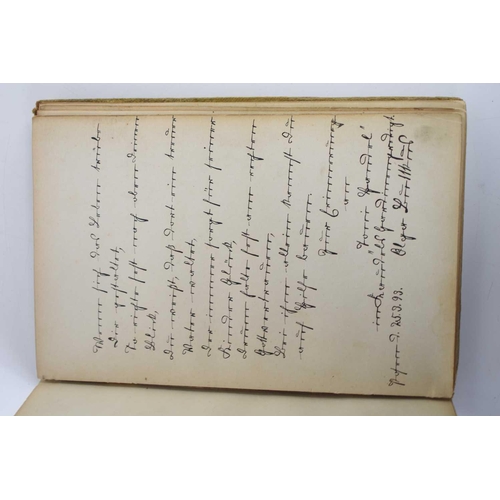 Wenn sich das Leben trübe
Dir gestaltet,
So richte fest nach oben deinen
Blick,
Du weißt, daß dort ein treuer
Vater waltet,
Der immer sorgt für seiner
Kinder Glück,
Drum halte fest am echten
Gottvertrauen,
Bei ihm allein kannst du
auf Hilfe bauen.
Zur Erinnerung
an
Deine
Olga
d. 25.2.93.